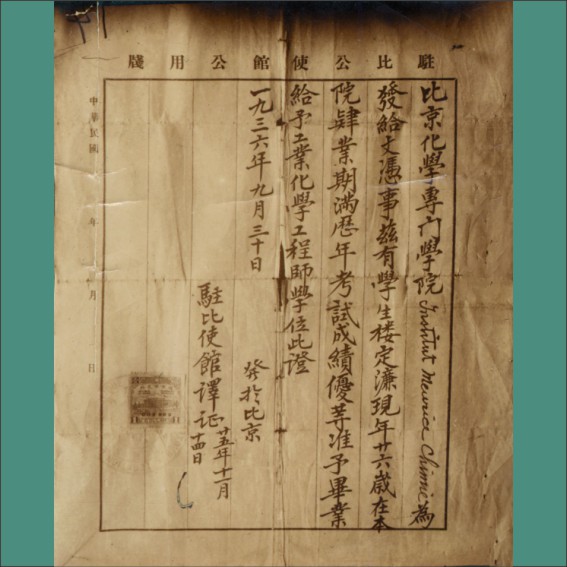 駐比公使館公用牋
比京化學專門學院 Institut Meurice Chimie 為
發給文憑事茲有學生楼定濂現年廿六歲在本
院肄業期滿歷年考試成績優等准予畢業
給予工業化學工程師學位此證
一九三六年九月三十日
發於比京
駐比使館譯证
廿五年十一月
十四日
中華民國 年 月 日